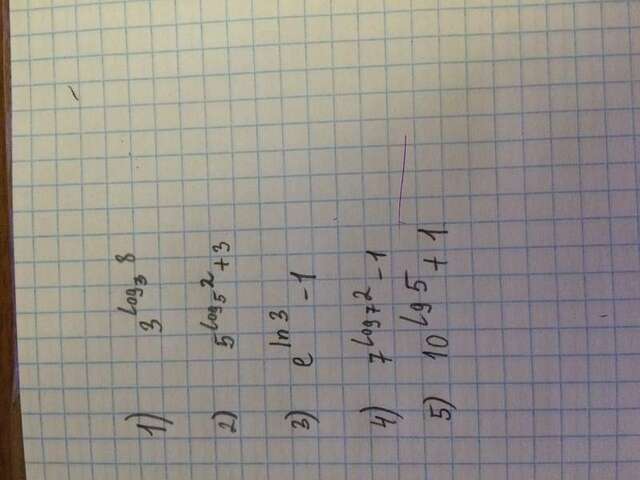 1) 3^{log_3 8}
2) 5^{log_5 2 + 3}
3) e^{ln 3} - 1
4) 7^{log_7 2 - 1}
5) 10^{lg 5} + 1